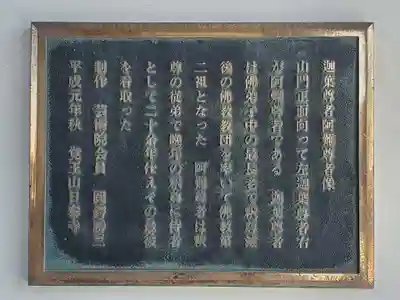 迦葉尊者阿難尊者像
山門正面向って左迦葉尊者右
が阿難尊者である 迦葉尊者
は佛弟子中の最長老で釈尊滅
後の佛教教団を率いて佛教第
二祖となった 阿難尊者は釈
尊の従弟で晩年の釈尊に侍者
として二十余年仕えその最後
を看取った
制作 芸術院会員
平成元年秋 覚王山日泰寺